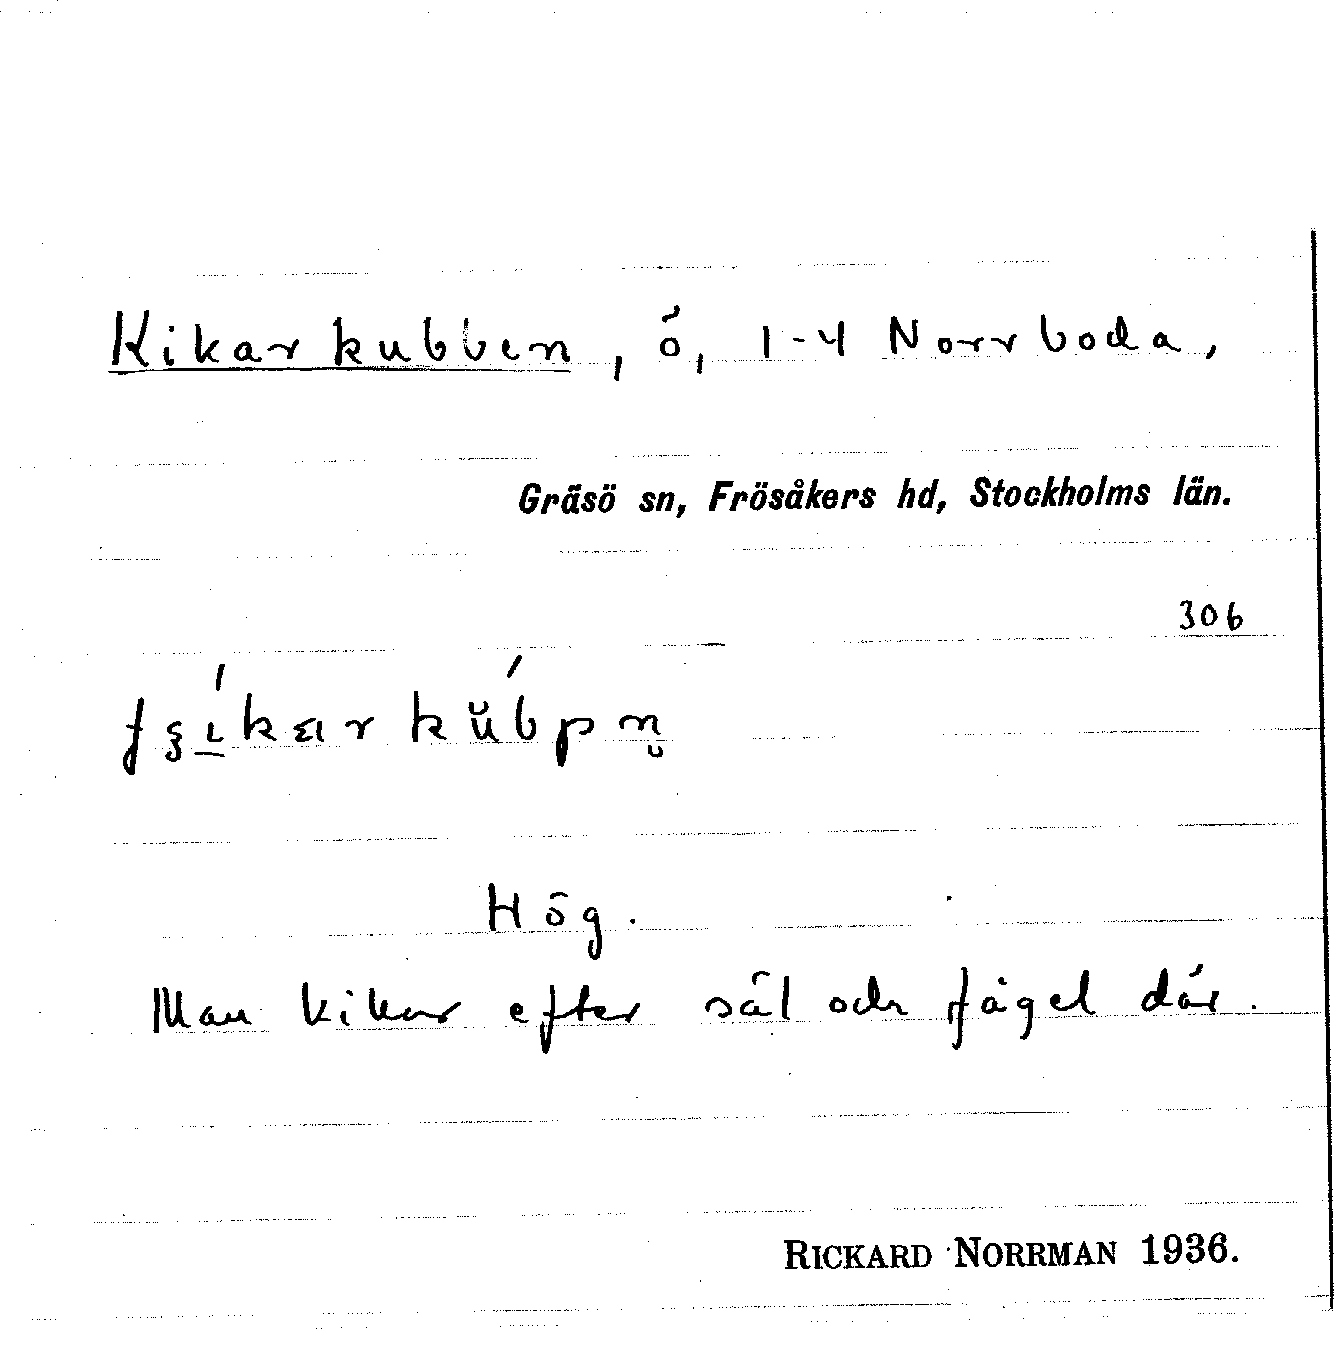 Kikarkubben, ö, 1-4 Norrboda,
Gräsö sn, Frösåkers hd, Stockholms län.
306
Hög.
Man kikar efter säl och fågel där.
RICKARD NORRMAN 1936.